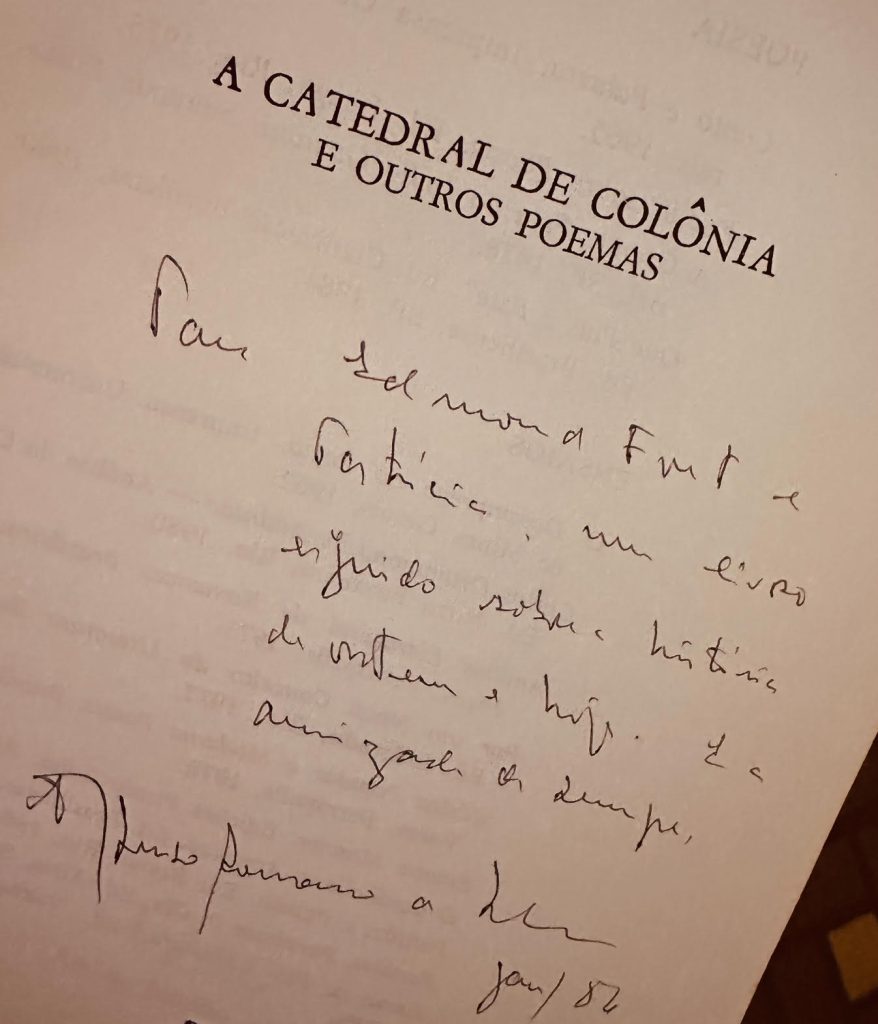 A CATEDRAL DE COLÔNIA
E OUTROS POEMAS
Para Edmond e
Patrícia, um livro
erguido sobre a história
de ontem e hoje. E a
amizade de sempre,
Affonso Romano de
jan/82